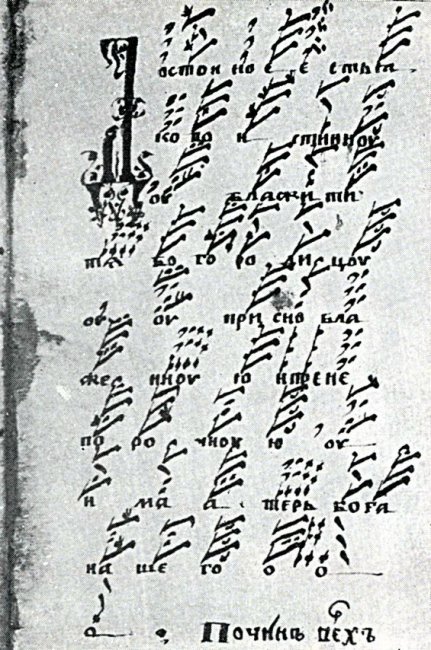 Достои но е е стьꙗ
ко во и стинноу
оу блажити
тѧ бо го ро ди цоу
оу оу при сно бла
же нноу ю и пре не
по ро чноу ю оу
и ма а терь бога
на ше го о о
Починъ